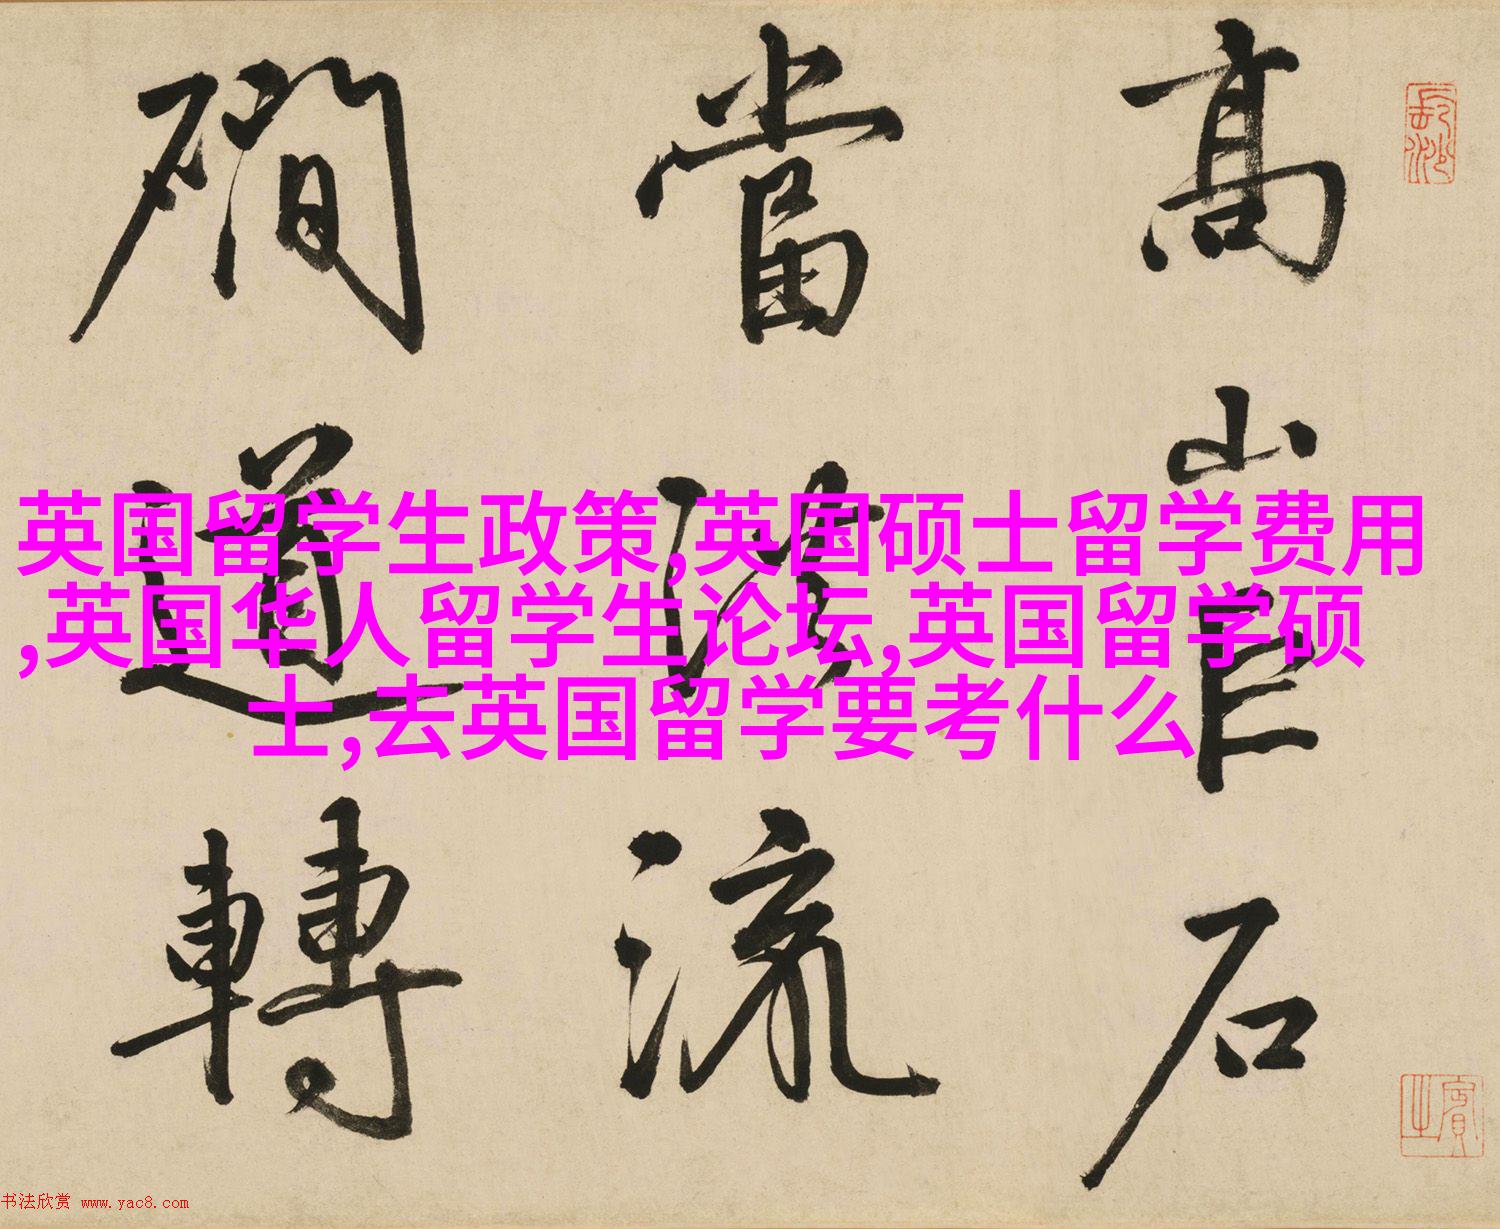 英国留学生政策,英国硕士留学费用
,英国华人留学生论坛,英国留学硕
士,去英国留学要考什么
長沙
賓之
高石
當流
磵道轉
书法欣赏 www.yac8.com